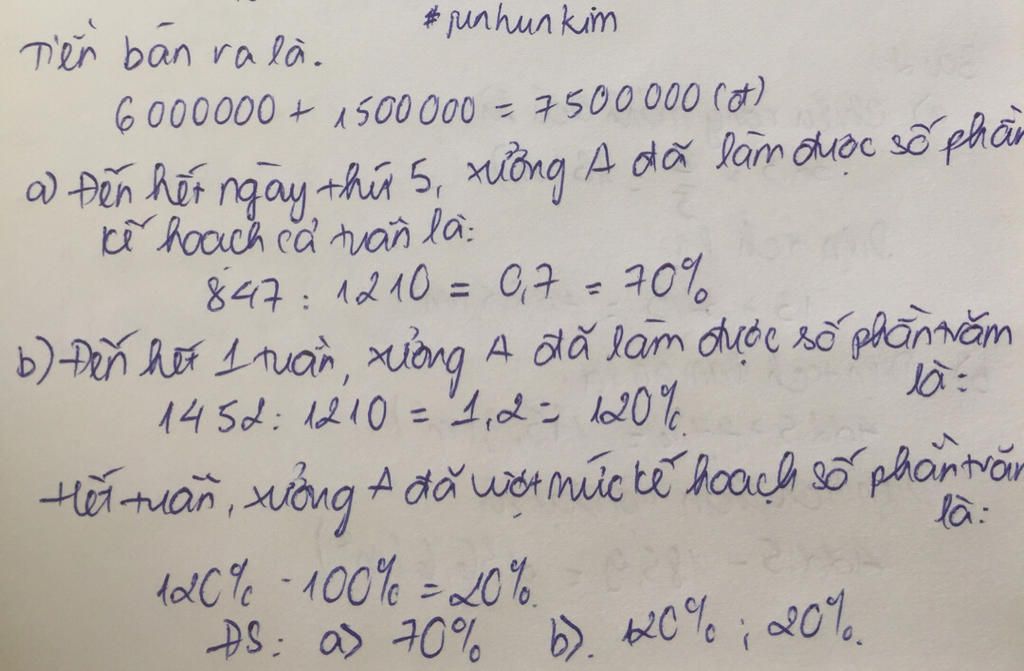 #junhunkim
Tiền bán ra là.
6000000 + 1500000 = 7500000 (đ)
a) Đến hết ngày thứ 5, xưởng A đã làm được số phần
kế hoạch cả tuần là:
847 : 1210 = 0,7 = 70%
b) Đến hết 1 tuần, xưởng A đã làm được số phần trăm
là:
1452 : 1210 = 1,2 = 120%.
Hết tuần, xưởng A đã vượt mức kế hoạch số phần trăm
là:
120% - 100% = 20%.
ĐS: a) 70% b). 120% ; 20%.